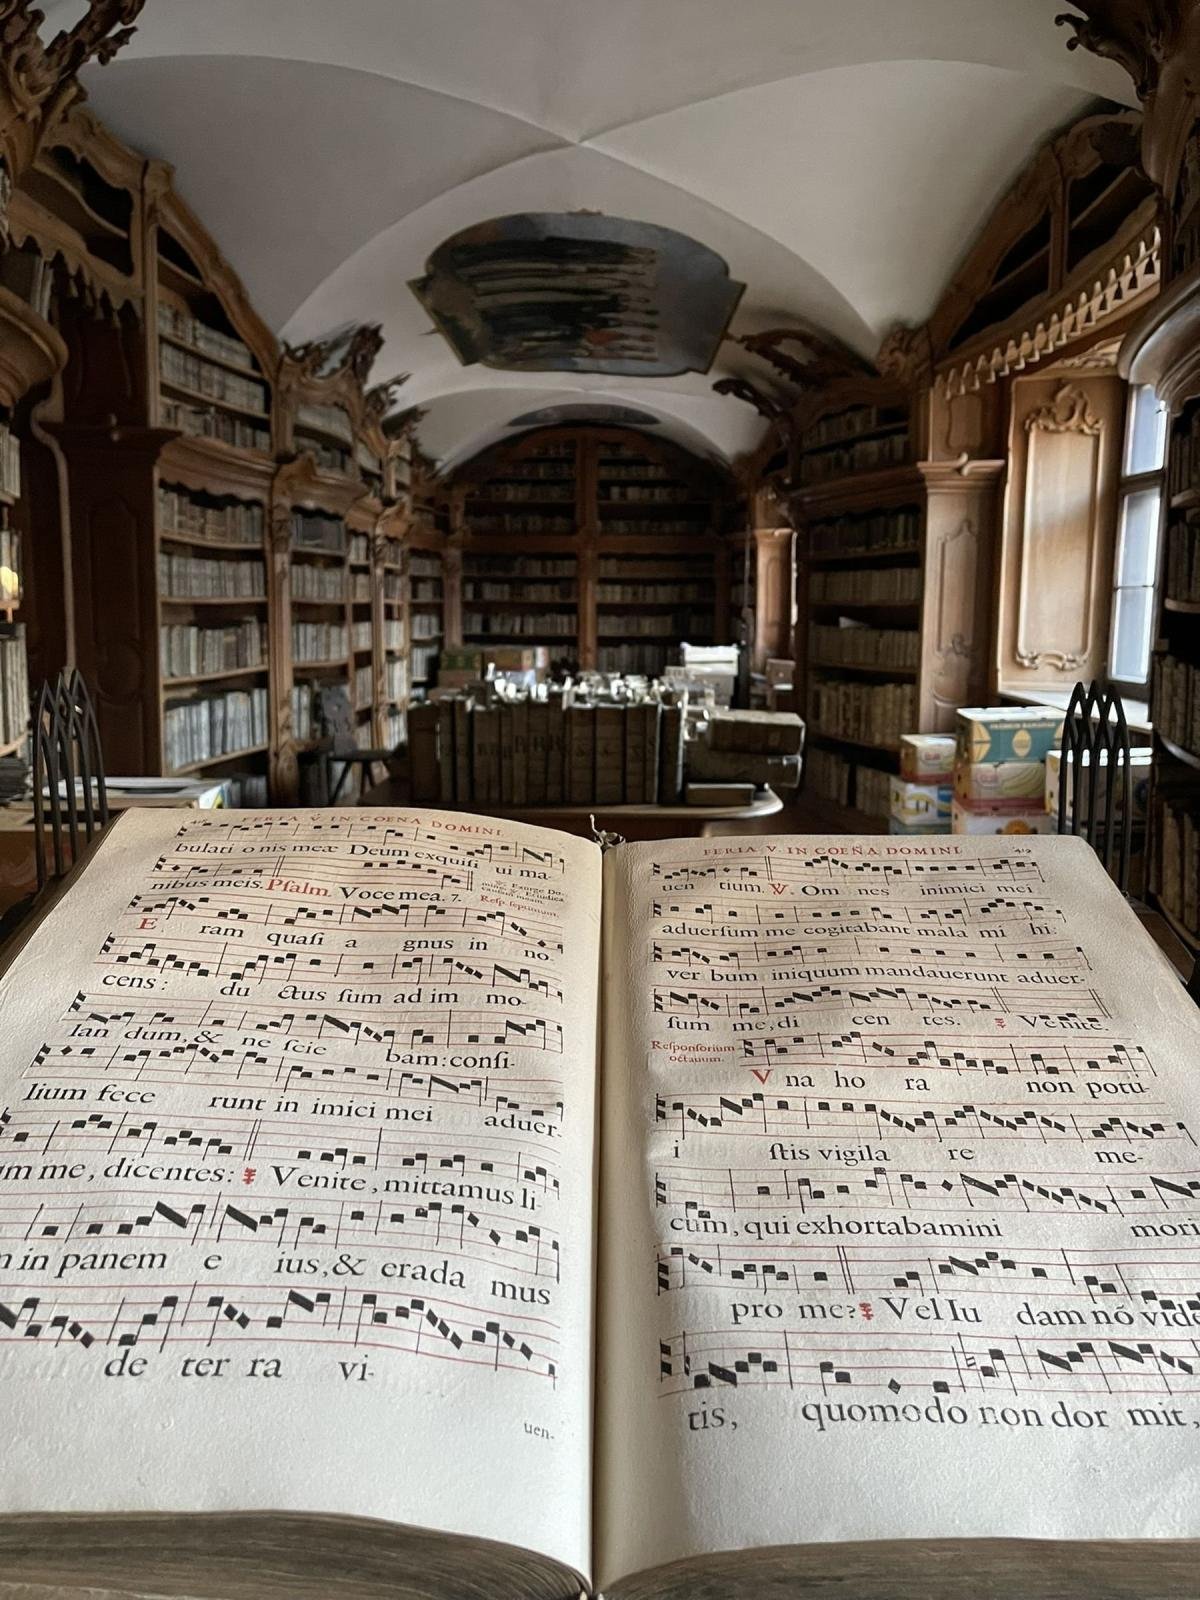 FERIA V. IN COENA DOMINI.
bulati o nis meæ Deum exquisi ui ma-
nibus meis. Psalm. Voce mea. 7.
Resp. septimum.
E ram quasi a gnus in no-
cens: du ctus sum ad im mo-
lan dum, & ne scie bam: consi-
lium fece runt in imici mei aduer-
um me, dicentes: Venite, mittamus li-
in panem e ius, & erada mus
de ter ra vi-
uen-
FERIA V. IN COENA DOMINI. 419
uen tium. V. Om nes inimici mei
aduersum me cogitabant mala mi hi:
ver bum iniquum mandauerunt aduer-
sum me, di cen tes. Venite.
Responsorium
octauum.
V na ho ra non potu-
i stis vigila re me-
cum, qui exhortabamini mori
pro me? Vel Iu dam nō vide
tis, quomodo non dor mit,